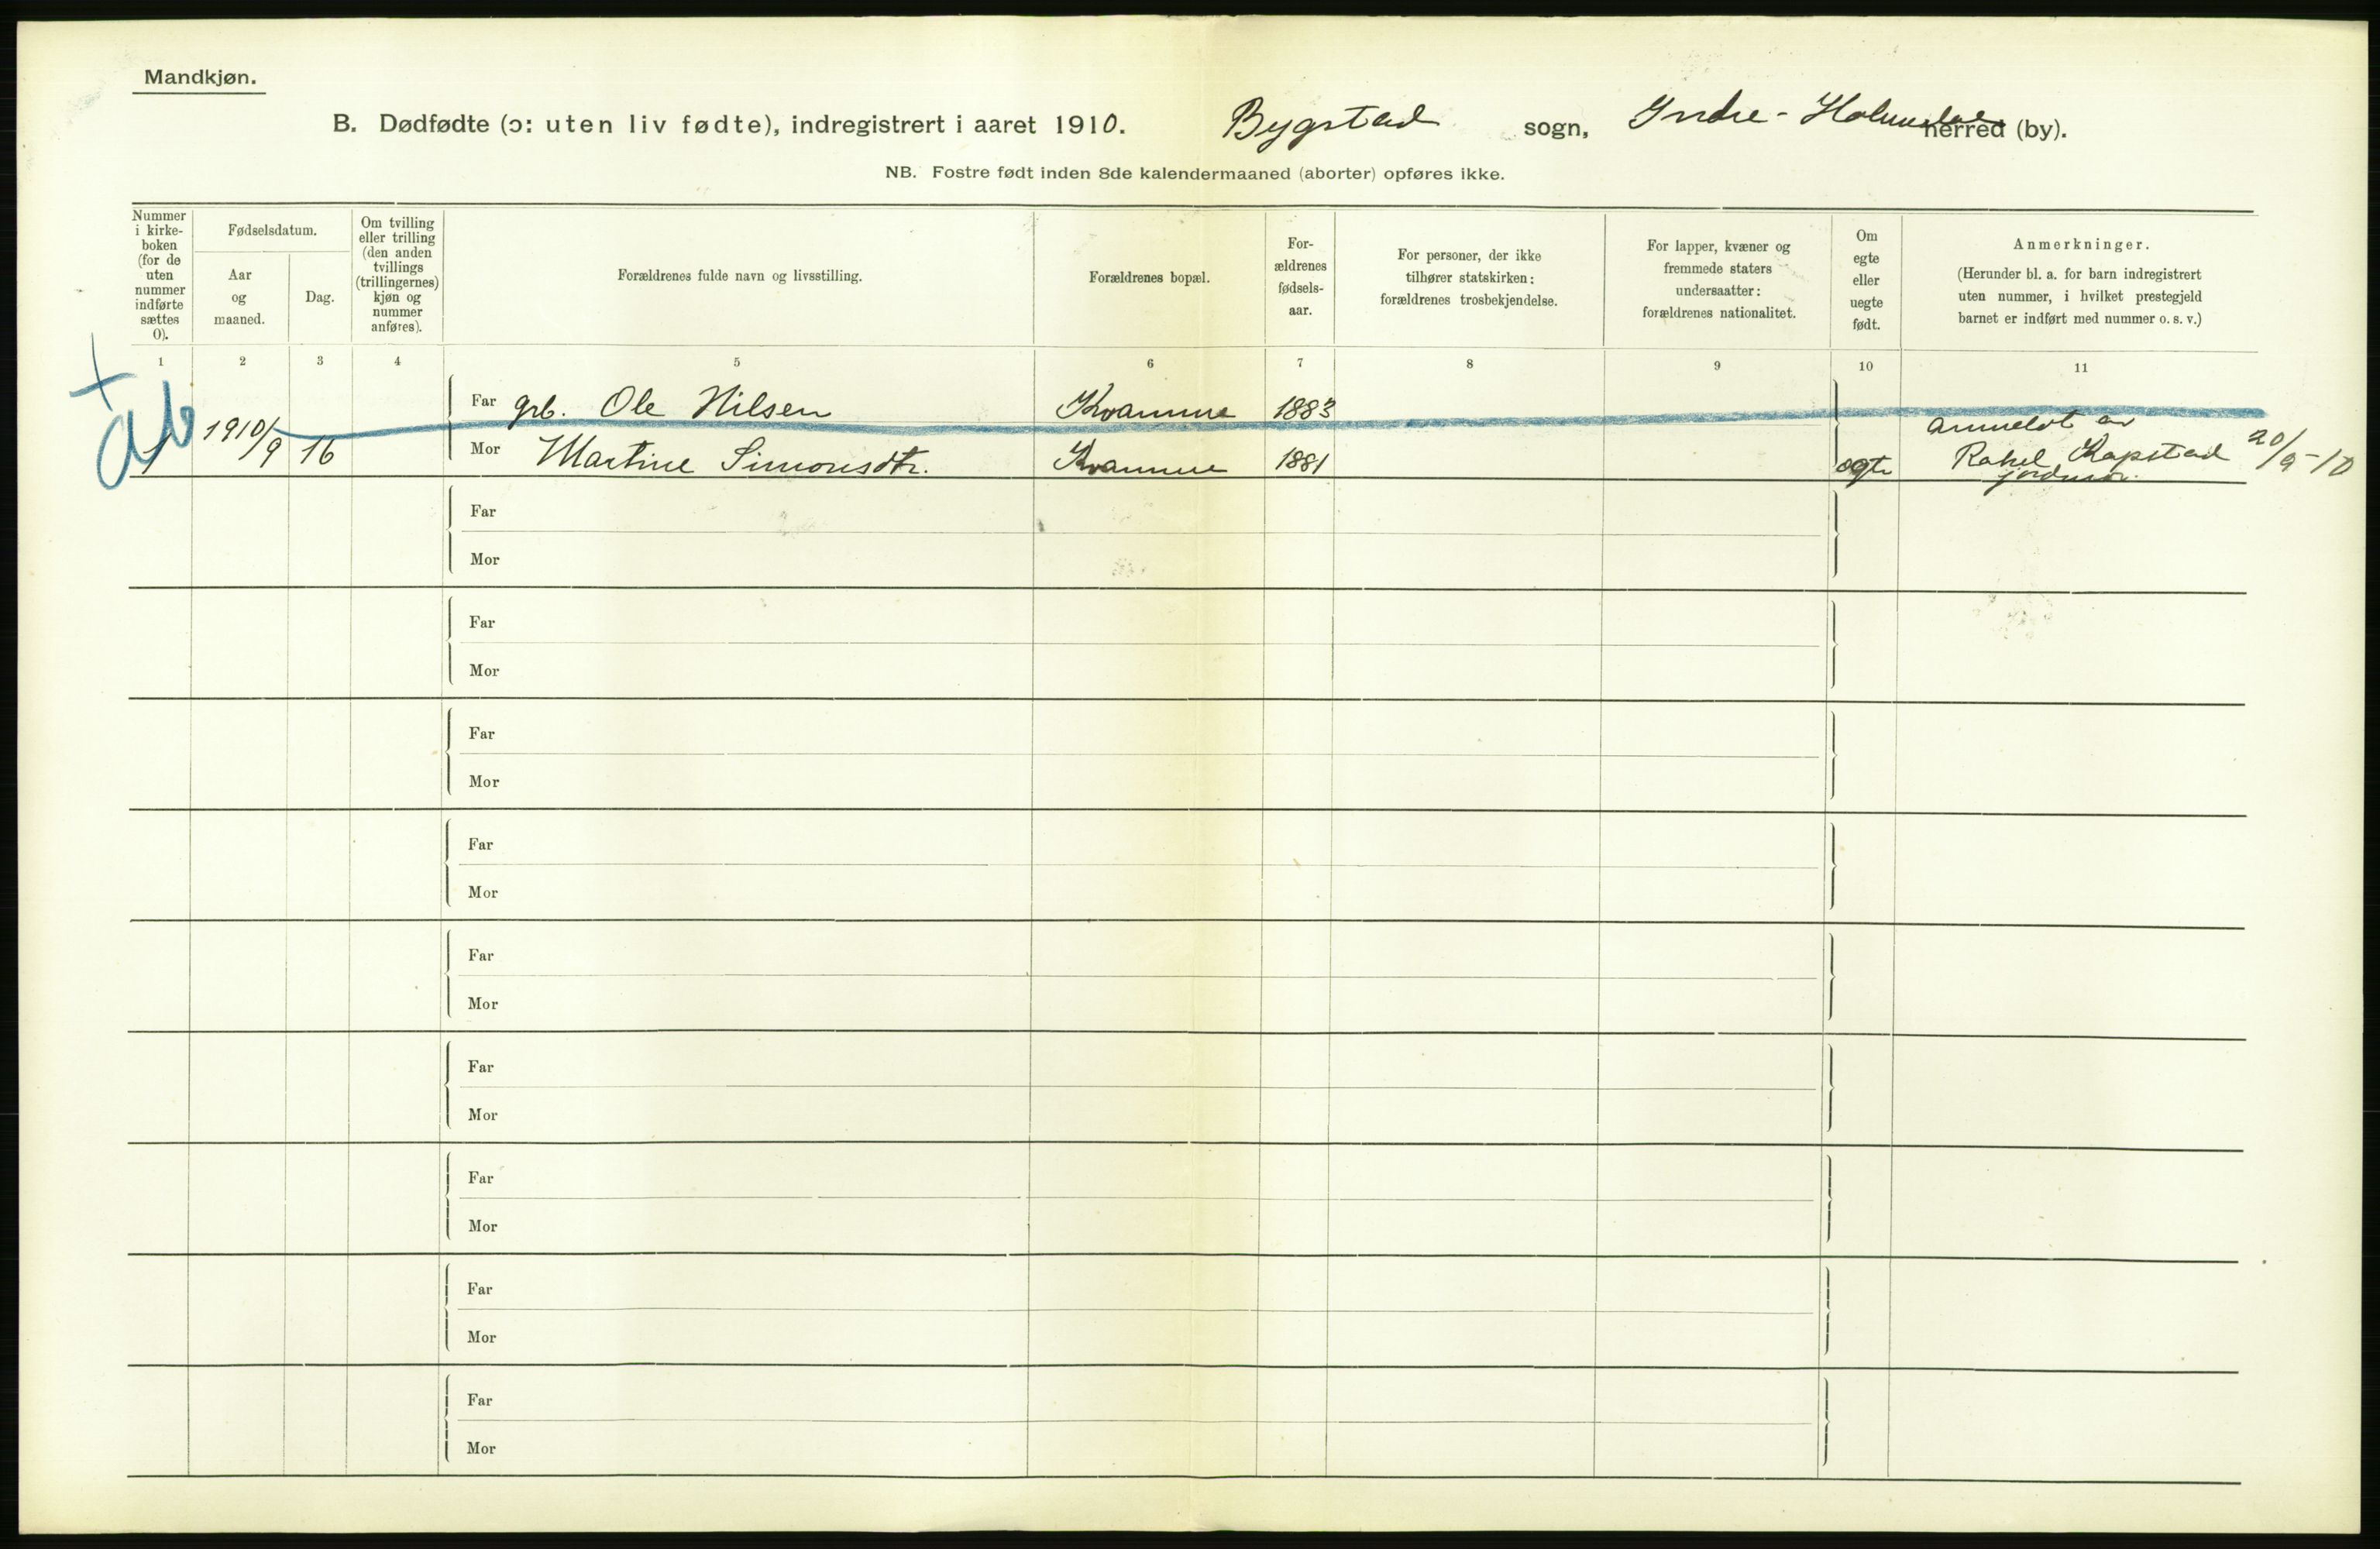 Mandkjøn.
B. Dødfødte (ɔ: uten liv fødte), indregistrert i aaret 1910. Bygstad sogn, Indre-Holmedal herred (by).
NB. Fostre født inden 8de kalendermaaned (aborter) opføres ikke.
Nummer
i kirke-
boken
(for de
uten
nummer
indførte
sættes
0).
Fødselsdatum.
Aar
og
maaned.
Dag.
Om tvilling
eller trilling
(den anden
tvillings
(trillingernes)
kjøn og
nummer
anføres).
Forældrenes fulde navn og livsstilling.
Forældrenes bopæl.
For-
ældrenes
fødsels-
aar.
For personer, der ikke
tilhører statskirken:
forældrenes trosbekjendelse.
For lapper, kvæner og
fremmede staters
undersaatter:
forældrenes nationalitet.
Om
egte
eller
uegte
født.
Anmerkninger.
(Herunder bl. a. for barn indregistrert
uten nummer, i hvilket prestegjeld
barnet er indført med nummer o. s. v.)
1 2 3 4 5 6 7 8 9 10 11
Far grb. Ole Nilsen Kvamme 1883
1 1910/9 16 Mor Martine Simonsdtr. Kvamme 1881 egte
anmeldt av
Rakel Kapstad 20/9-10
jordmor.
Far
Mor
Far
Mor
Far
Mor
Far
Mor
Far
Mor
Far
Mor
Far
Mor
Far
Mor
Far
Mor